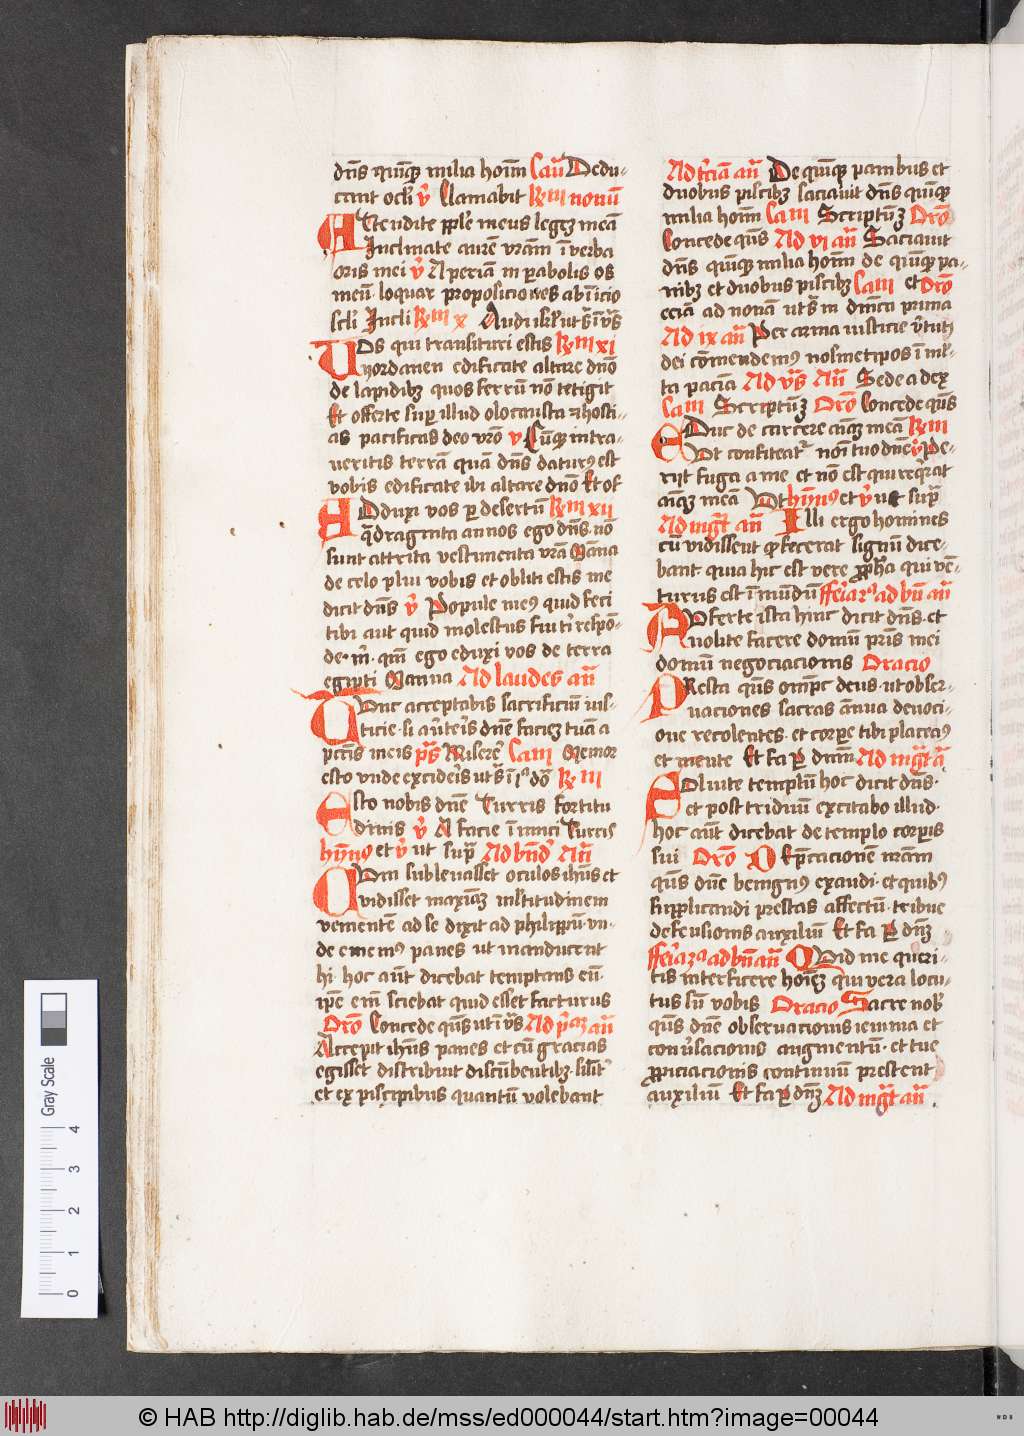 dn̄s quīq̄ milia hoīm Cam̄ Dedu-
cant ocl̓i v̓ Clamabit R̄m nonū
Attendite pp̄le meus legeꝫ meā
Inclinate aurē vr̄am ī verba
oris mei v̓ Aperiam in ꝑabolis os
meū· loquar proposiciones ab īicio
scl̓i Incli R̄m x Audi isr̄l ut s̄ ī v̓s
Vos qui transituri estis R̄m xi
iordanen edificate altare dn̄o
de lapidibꝫ quos ferrū nō tetigit
Et offerte suꝑ illud olocausta ⁊ hosti-
as pacificas deo vr̄o v̓ Cūq̄ intra-
veritis terrā quā dn̄s daturꝰ est
vobis edificate ibi altare dn̄o Et of
Adduxi vos ꝑ desertū R̄m xii
q̄draginta annos ego dn̄s nō
sunt attrita vestimenta vr̄a Māna
de celo plui vobis et obliti estis me
dicit dn̄s v̓ Popule meꝰ quid feci
tibi aut quid molestus fui ti̓ respō-
de· m̓· qm̄ ego eduxi vos de terra
egipti Manna Ad laudes an̄
Tunc acceptabis sacrificiū ius-
ticie· si au̓te̓is dn̄e faciez tuā a
pctīs meis p̄s Misere̓ Cam Memor
esto unde excide̓is ut s̄ ī iᵃ dō R̄m
Esto nobis dn̄e Turris fortitu
dinis v̓ A facie īimici Turris
hȳnꝰ et v̓ ut sup̄ Ad bn̄d̓ An̄
Cum sublevasset oculos ihūs et
vidisset maxiāꝫ mltitudinem
vementē ad se dixit ad philippū vn-
de ememꝰ panes ut manducent
hi· hoc aūt dicebat temptans eū·
ip̄e em̄ sciebat quid esset facturus
Orō Concede qs̄ ut ī v̓s Ad p̓aꝫ an̄
Accepit ihūs panes et cū gracias
egisset distribuit discūbentibꝫ· sil̓it̓
et ex piscipibus quantū volebant
Ad t̓ciā an̄ De quīq̄ panibus et
duobus piscibꝫ saciavit dn̄s quīq̄
milia hoīm Cam Scriptūꝫ Orō
Concede qs̄ Ad vi an̄ Saciavit
dn̄s quīq̄ milia hoīm de quīq̄ pa-
nibꝫ et duobus piscibꝫ Cam et Orō
eciā ad nonā ut s̄ in dn̄ica prima
Ad ix an̄ Per arma iusticie v̓tutꝫ
dei cōmendemꝰ nosmetipos ī ml̓-
ta paciā Ad v̓s An̄ Sede a dex
Cam Scriptūꝫ Orō Concede qs̄
Educ de carcere aīaꝫ meā R̄m
Vt confiteatᷣ noī tuo dn̄e v̓ Pe-
riit fuga a me et nō est qui req̓rat
aīaꝫ meā Vt hȳnꝰ et v̓ ut sup̄
Ad mg̓t an̄ Illi ergo homines
cū vidissent q̄ fecerat signū dice-
bant· quia hic est vere ꝓph̄a qui vē-
turus est ī mūdū ffe̓ia ijᵃ ad bn̄ an̄
Auferte ista hinc dicit dn̄s· et
nolite facere domū pr̄is mei
domū negociacionis Oracio
Presta qs̄ omp̄c deus· ut obser-
vaciones sacras ānua devoci-
one recolentes· et corꝑe tibi placeaꝰ
et mente Et fa ꝑ dn̄m Ad mg̓t ā
Solvite templū hoc dicit dn̄s·
et post triduū excitabo illud·
hoc aūt dicebat de templo corꝑis
sui Orō Dep̄cacionem nr̄am
qs̄ dn̄e benignꝰ exaudi· et quibꝰ
supplicandi prestas affectū· tribue
defensionis auxiliū Et fa ꝑ dn̄ꝫ
ffe̓ia iijᵃ ad bn̄ an̄ Quid me queri-
tis interficere hoīeꝫ qui vera locu-
tus sū vobis Oracio Sacre nob̓
qs̄ dn̄e observacionis ieiunia et
conv̓sacionis augmentū· et tue
ꝓpiciacionis continuū prestent
auxiliū Et fa ꝑ dn̄ꝫ Ad mg̓t an̄
Gray Scale
0 1 2 3 4
© HAB http://diglib.hab.de/mss/ed000044/start.htm?image=00044